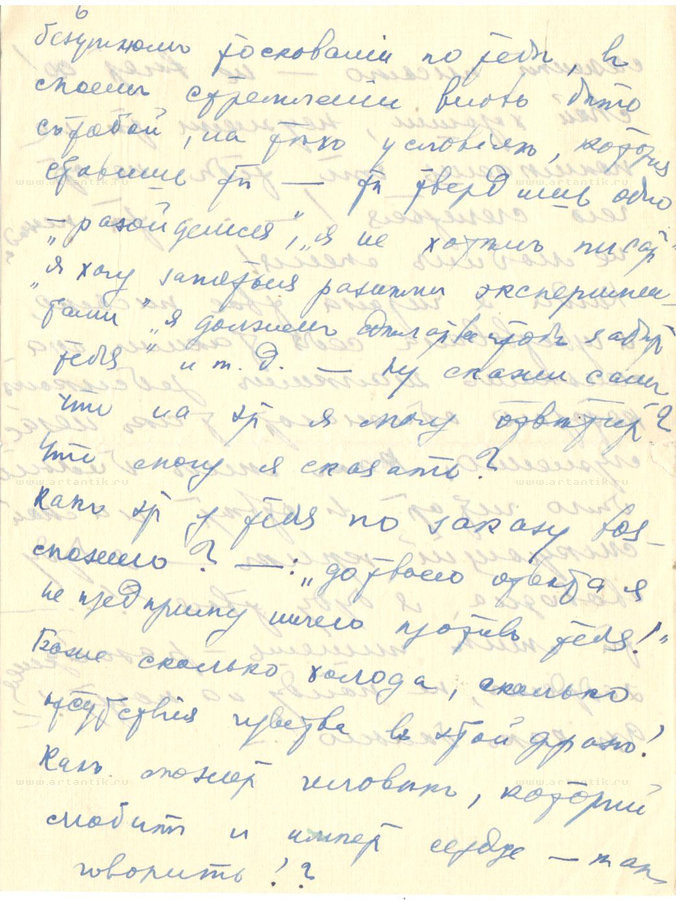 6
безумномъ тоскованіи по тебѣ, въ
моемъ стремленіи вновь быть
съ тобой, на тѣхъ условіяхъ, которыя
ставишь ты — ты твердишь одно
— „разойдемся", „я не хотѣлъ писать"
„я хочу заняться разными эксперимен-
тами" „я долженъ сдѣлать чтобъ забыть
тебя" и т. д. — Ну скажи самъ
что на это я могу отвѣтить?
Что могу я сказать?
Какъ это у тебя по заказу воз-
можно? — : „до твоего отвѣта я
не предприму ничего противъ тебя!"
Боже сколько холода, сколько
отсутствія чувства въ этой фразѣ!
Какъ можетъ человѣкъ, который
любитъ и имѣетъ сердце — такъ
говорить!?
www.artantik.ru